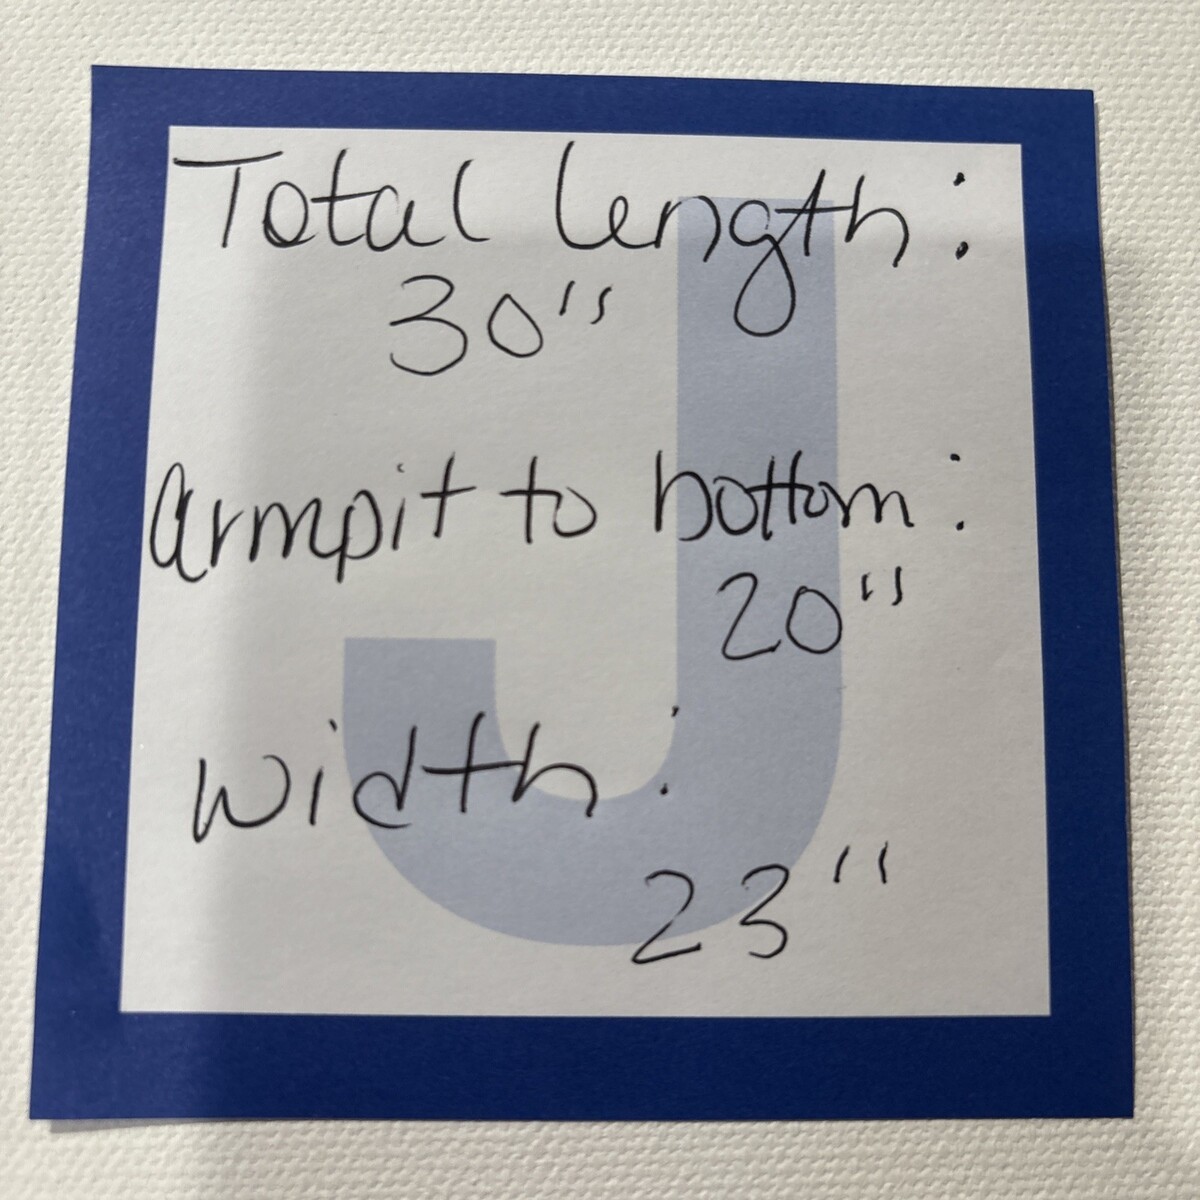 Total length:
30"
armpit to bottom:
20"
width:
23"
J